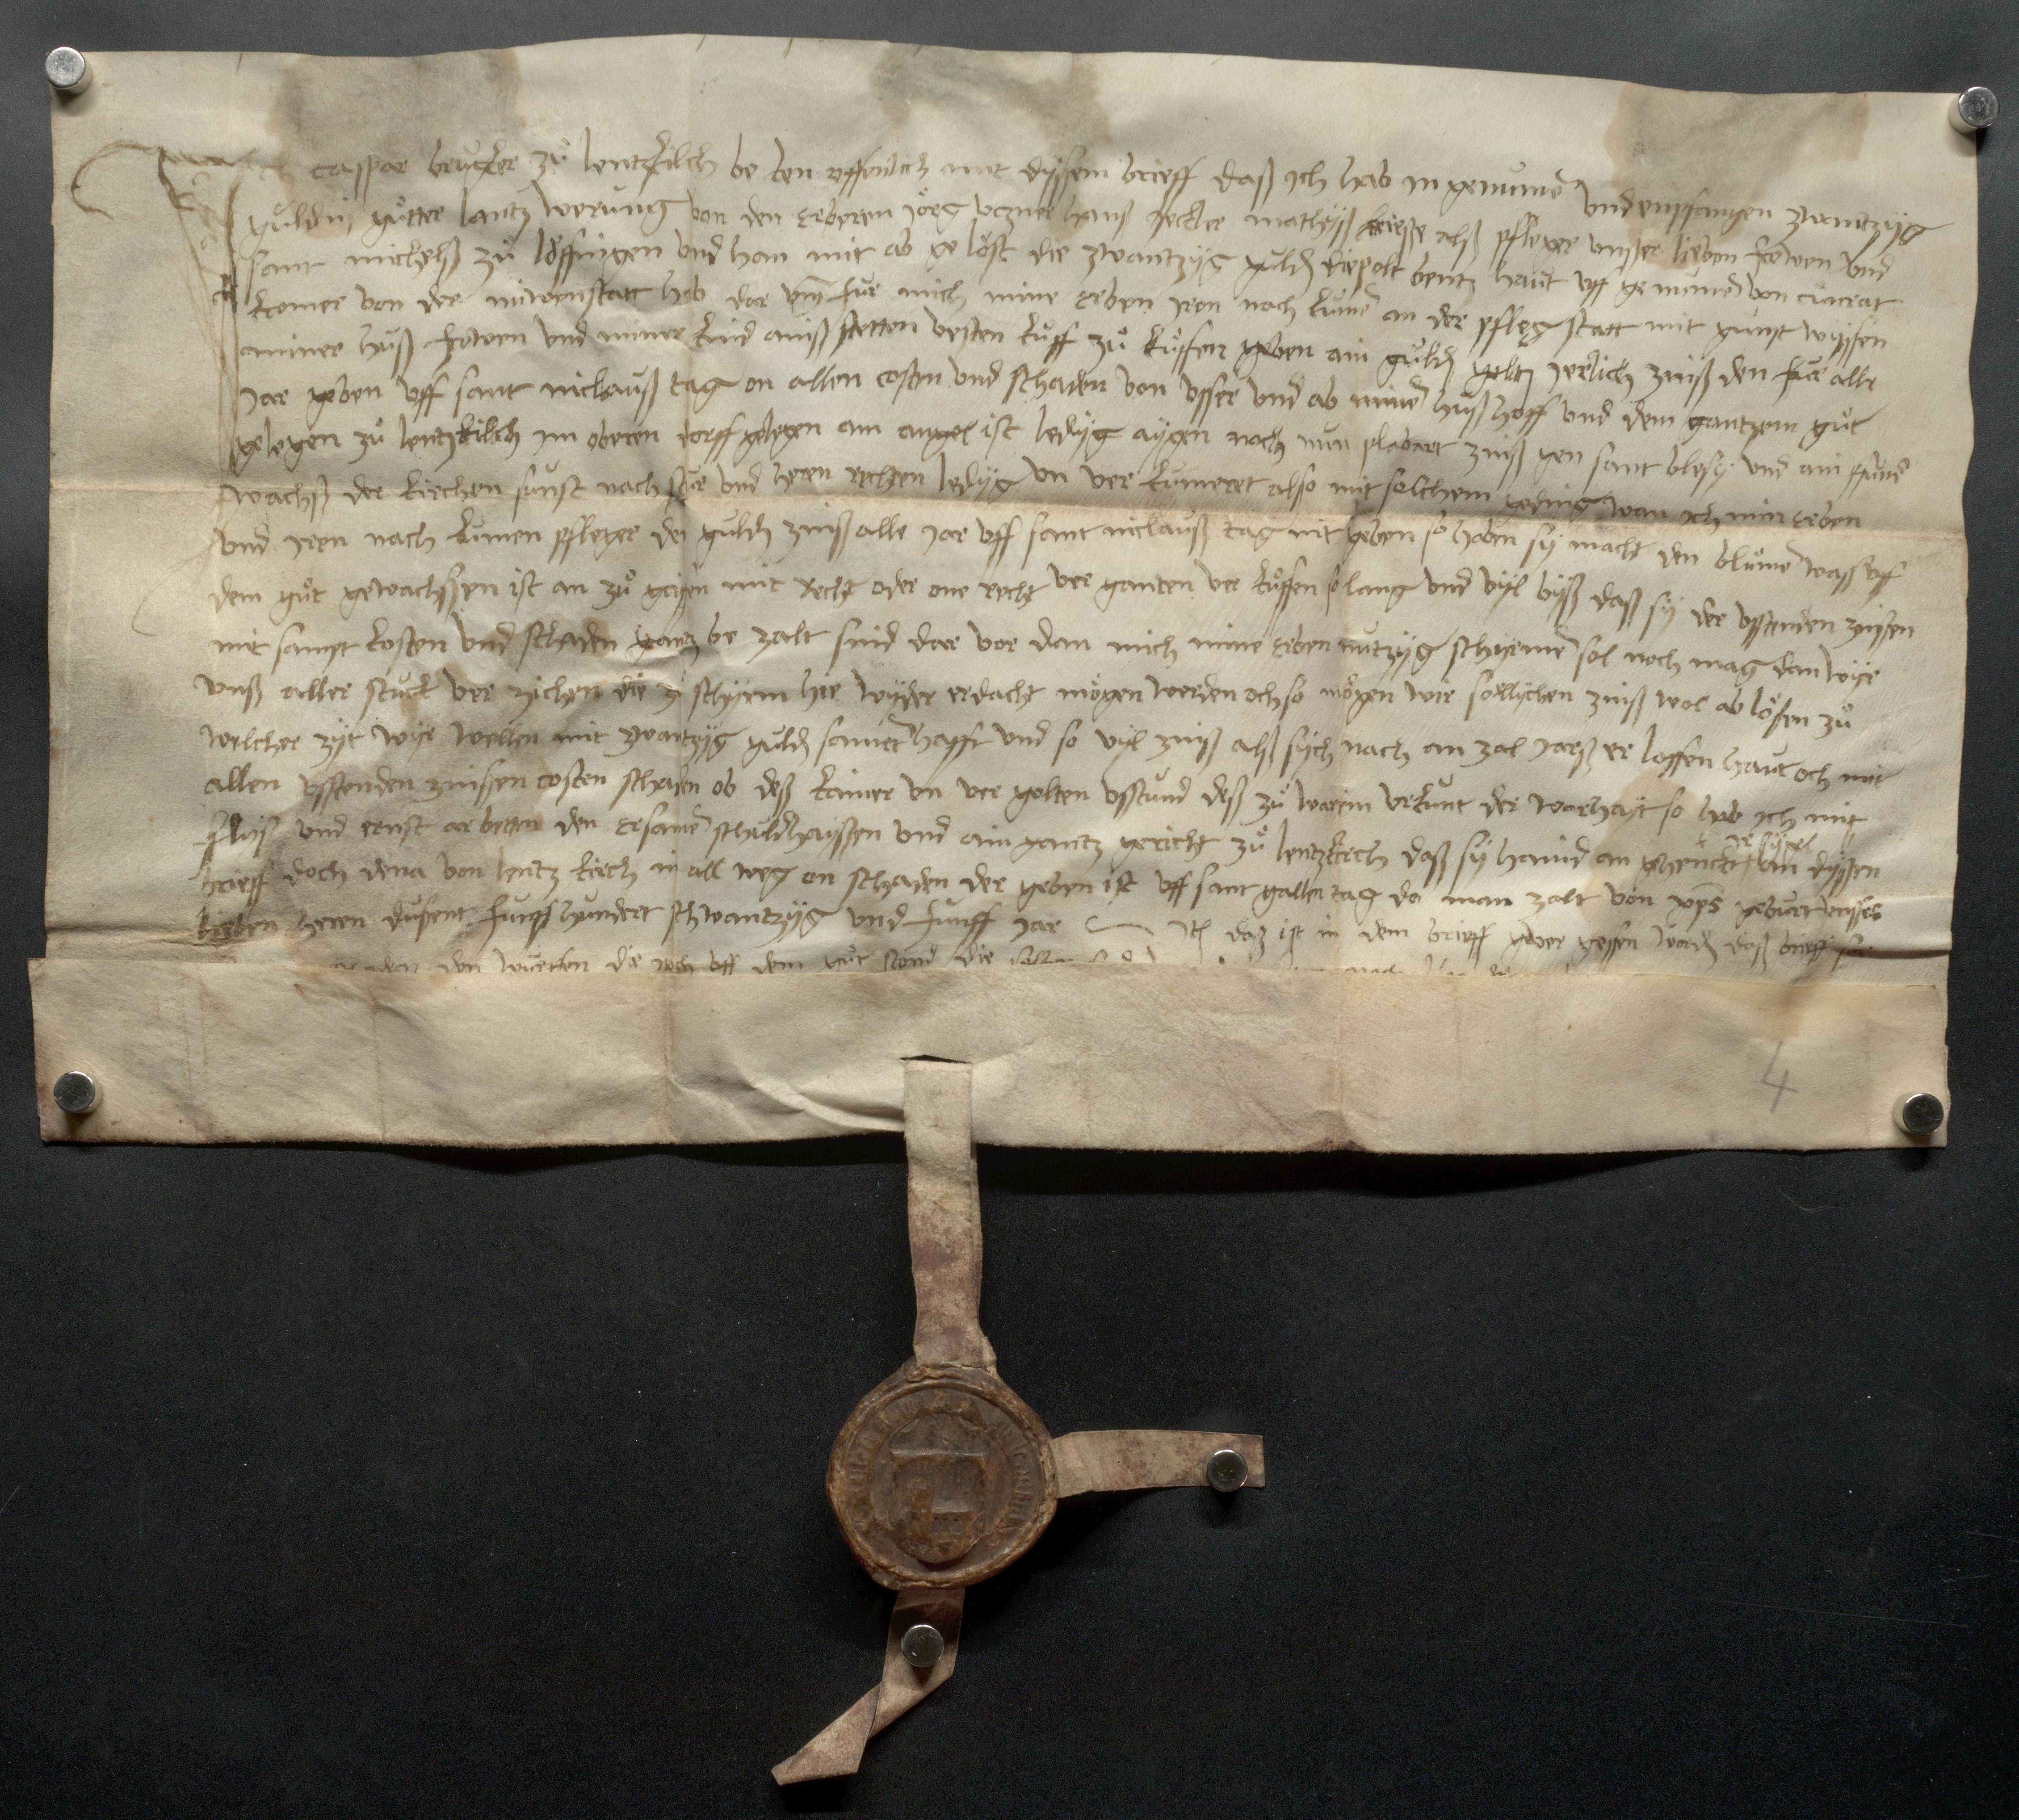 Ich caspar brucker zů lentzkilch be ken offenlich mit dyssem brieff daß ich hab in genumē vnd enpfangen zwantzyg
guldin gůtter lantz werung von den erberen Jörg hanß mathyß alß pfleger vnsser lieben frowen vnd
sant michelß zů löffingen vnd han mit ab ge löst die zwantzyg guld diepolt bentz haut vff genumē von cůnrat
kromer von der nüwenstatt hab dar vm fur mich mine erben iren nach kumē an der pfleg statt mit gunst wyssen
aminer huß frowen vnd miner kind ainß stetten vesten kuff zů köffen geben ain guld geltz jerlich zinß den fur alle
Jar geben vff sant niclauß tag on allen costen vnd schaden von vsser vnd ab minē huß hoff vnd dem gantzem gůt
gelegen zů lentzkilch im oberen dorff gelegen am angel ist ledyg aygen noch nun plabart zinß gen sant blesy vnd ain pfund
wachß der kirchen sunst nach stur vnd heren rechten ledyg vn ver kumeret also mit solchem geding wan ich min erben
vnd iren nach kumen pfleger de guldi zinß alle Jar vff sant niclauß tag nit geben so haben sy macht den blůmē waß vff
dem gůt gewachssen ist an zů grifen mit recht oder one recht ver ganten ver köffen so lang vnd vyl byß daß sy der vsstenden zinsen
mit sampt kosten vnd schaden gantz be zalt sind dar vor dan mich mine erben nutzyg schyrmē sol noch mag dan wyr
vnß aller stuck ver zichen die zů schyrm hie wyder erdacht mögen werden och so mögen wir söllychen zinß wol ab lösen zů
welcher zyt wyr wellen mit zwantzyg guld samenthafft vnd so vyl zinß alß sych nach an zal Jarß er loffen haut och mit
allen vsstenden zinssen costen schaden ob deß kainer vn ver golten vsstund deß zů warem vrkunt der warhayt so hab ich mit
flyß vnd ernst er betten den ersamē schuldhayssen vnd ain gantz gericht zů lentzkirch daß sy haind an gehenckt ir sygel an dyssen
brieff doch dena von lentz kirch in all weg on schaden der geben ist vff sant gallen tag do man zalt von xps geburt vnssers
lieben heren dusent funff hundert schwantzyg vnd funff Jar Itē daz ist in dem brieff ver gessen word daß brieff
den die noch vff dem gůt stond die
4